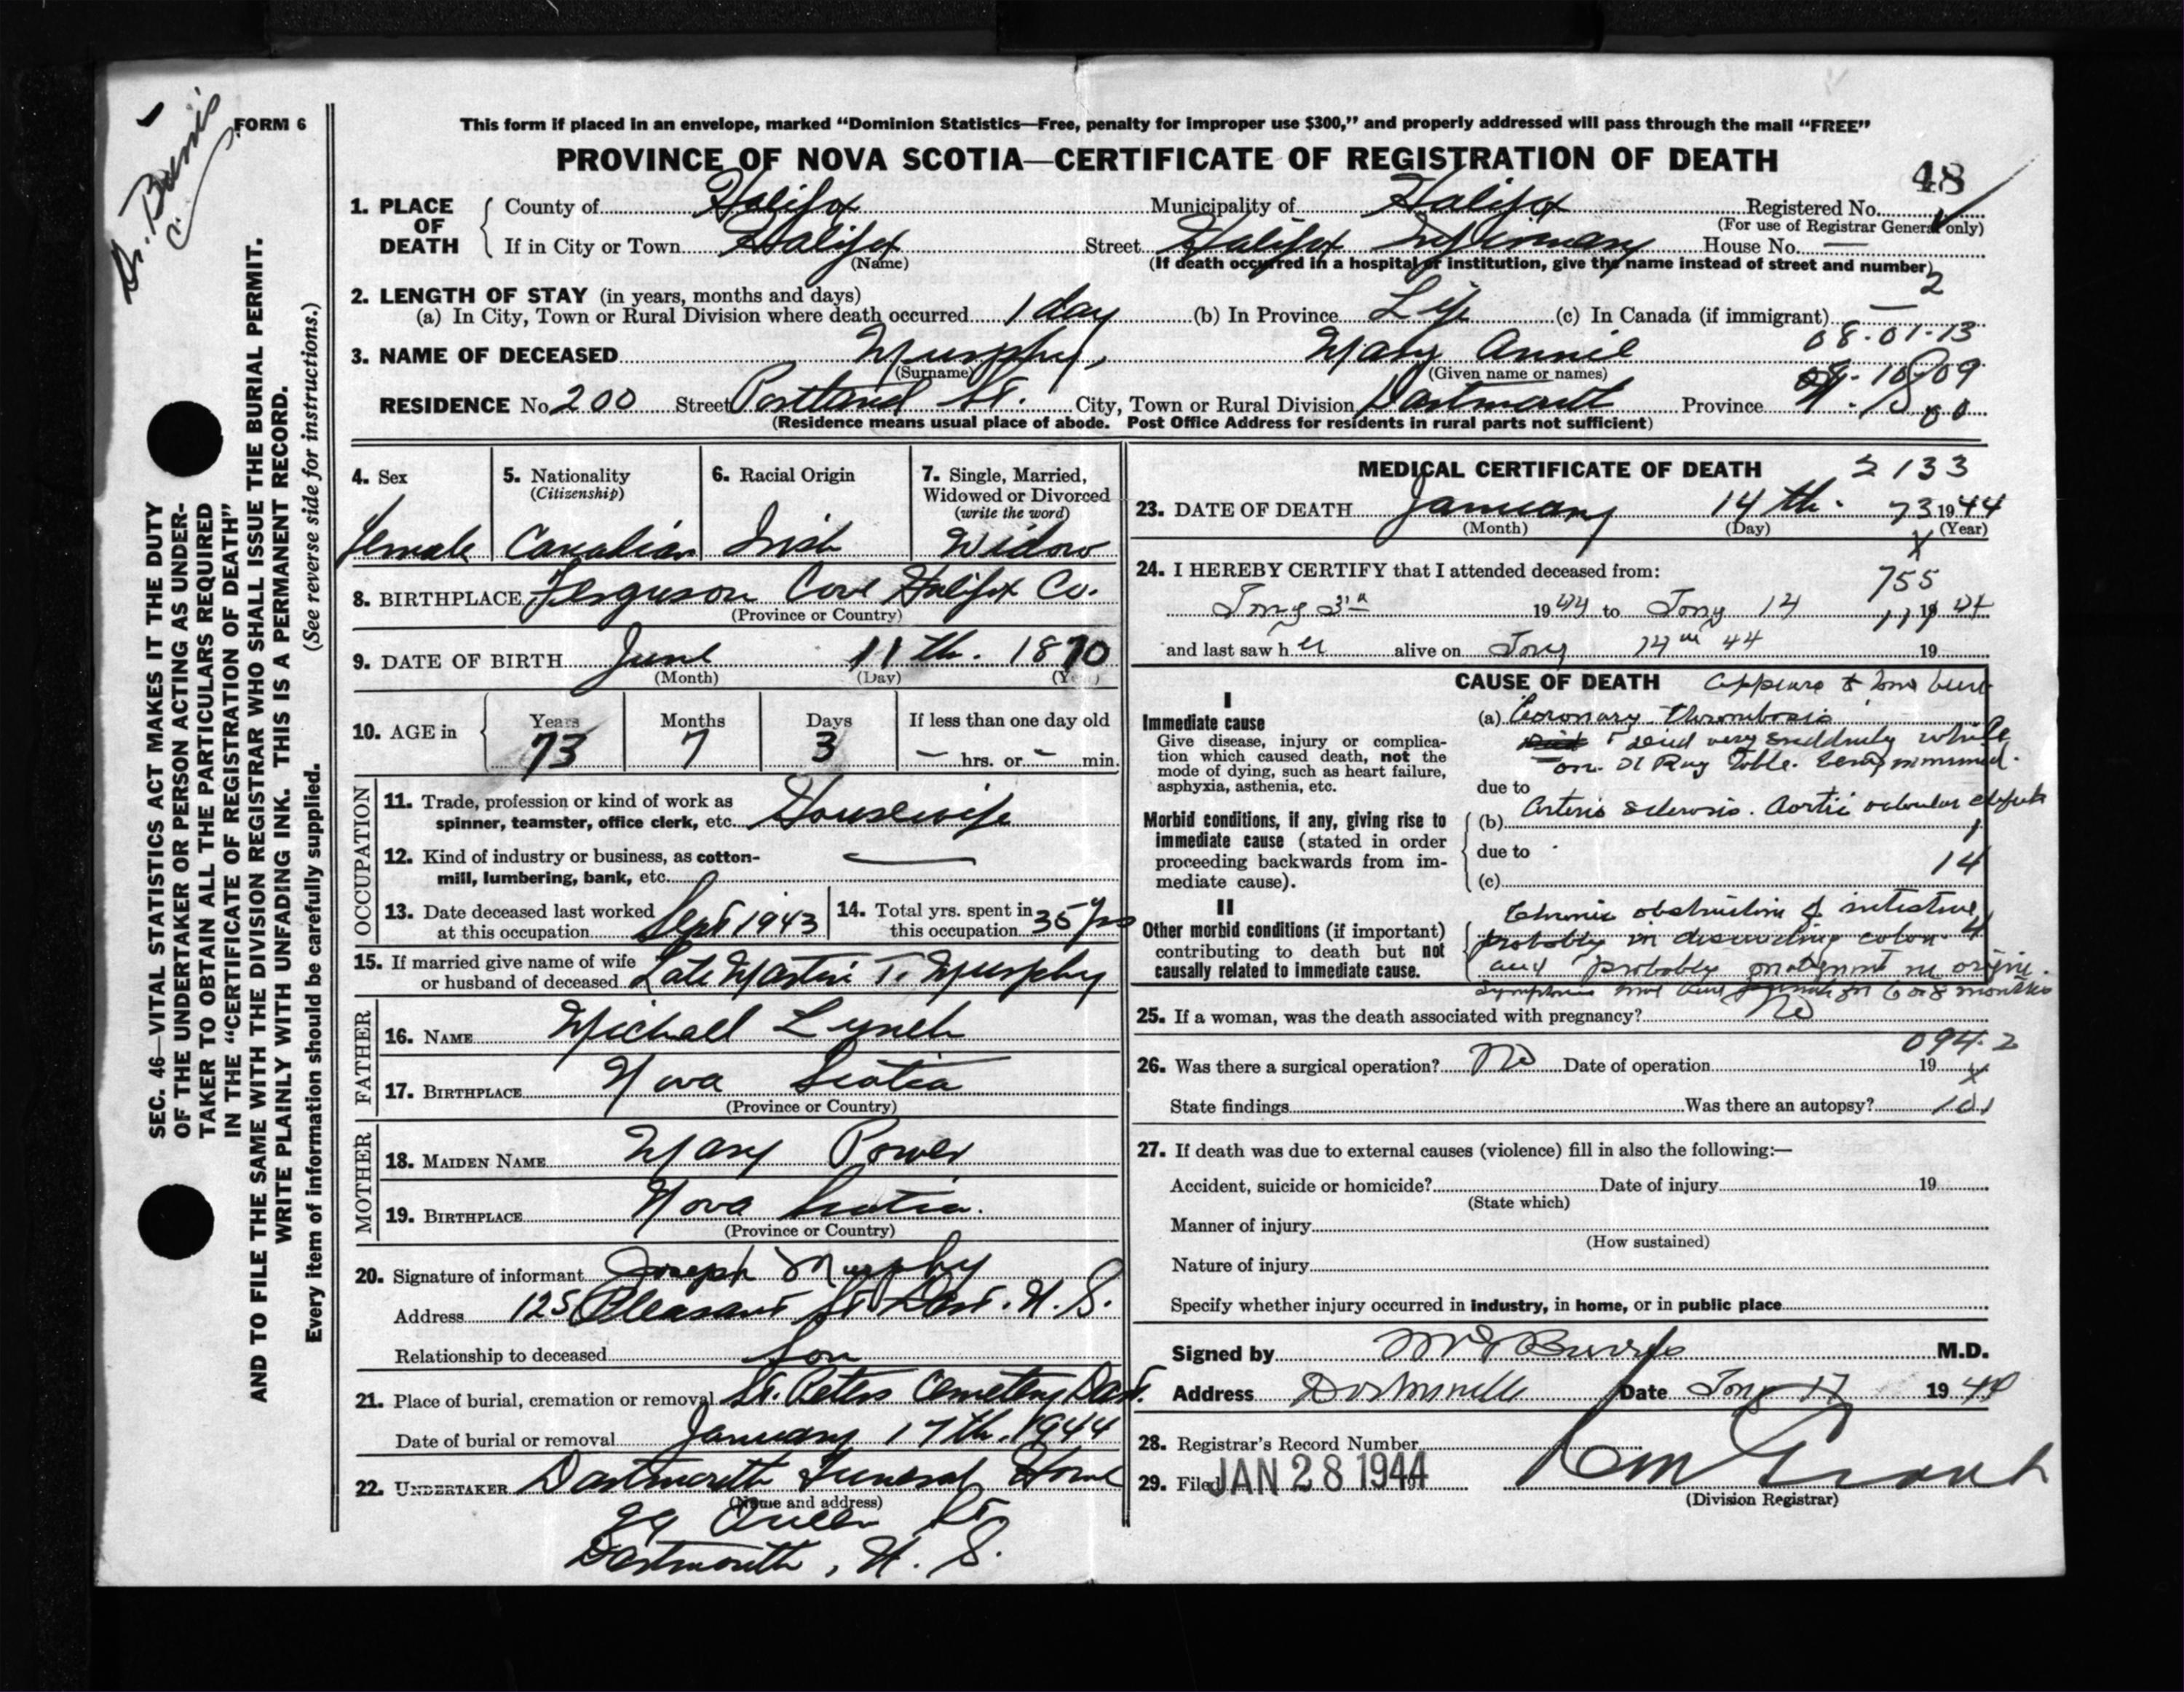 Dr. Burris
FORM 6
This form if placed in an envelope, marked “Dominion Statistics—Free, penalty for improper use $300,” and properly addressed will pass through the mail “FREE”
PROVINCE OF NOVA SCOTIA—CERTIFICATE OF REGISTRATION OF DEATH
48
1. PLACE OF DEATH
County of Halifax Municipality of Halifax Registered No.
(For use of Registrar General only)
If in City or Town Halifax Street Halifax Infirmary House No. —
(Name) (If death occurred in a hospital or institution, give the name instead of street and number)
2
2. LENGTH OF STAY (in years, months and days)
(a) In City, Town or Rural Division where death occurred 1 day (b) In Province Life (c) In Canada (if immigrant) —
08-01-13
3. NAME OF DECEASED Murphy, Mary Annie
(Surname) (Given name or names)
RESIDENCE No. 200 Street Portland St. City, Town or Rural Division Dartmouth Province N. S.
(Residence means usual place of abode. Post Office Address for residents in rural parts not sufficient)
4. Sex
Female
5. Nationality
(Citizenship)
Canadian
6. Racial Origin
Irish
7. Single, Married, Widowed or Divorced
(write the word)
Widow
8. BIRTHPLACE Ferguson Cove Halifax Co.
(Province or Country)
9. DATE OF BIRTH June 11th. 1870
(Month) (Day) (Year)
10. AGE in
Years Months Days If less than one day old
73 7 3 — hrs. or — min.
OCCUPATION
11. Trade, profession or kind of work as
spinner, teamster, office clerk, etc. Housewife
12. Kind of industry or business, as cotton-
mill, lumbering, bank, etc. —
13. Date deceased last worked
at this occupation Sept 1943
14. Total yrs. spent in
this occupation 35 yrs
15. If married give name of wife
or husband of deceased Late Martin T. Murphy
FATHER
16. NAME Michael Lynch
17. BIRTHPLACE Nova Scotia
(Province or Country)
MOTHER
18. MAIDEN NAME Mary Power
19. BIRTHPLACE Nova Scotia.
(Province or Country)
20. Signature of informant Joseph Murphy
Address 125 Pleasant St Dart. N. S.
Relationship to deceased Son
21. Place of burial, cremation or removal St. Peters Cemetery Dart.
Date of burial or removal January 17th. 1944
22. UNDERTAKER Dartmouth Funeral Home
(Name and address)
99 Queen St
Dartmouth, N. S.
MEDICAL CERTIFICATE OF DEATH 2133
23. DATE OF DEATH January 14th. 73 1944
(Month) (Day) (Year)
24. I HEREBY CERTIFY that I attended deceased from:
755
1944 to Jany 14 19
and last saw her alive on Jany 14th 44 19
CAUSE OF DEATH Appears to have been
I
Immediate cause
Give disease, injury or complica-
tion which caused death, not the
mode of dying, such as heart failure,
asphyxia, asthenia, etc.
(a) Coronary thrombosis
died very suddenly while
on X Ray table being examined.
due to
Morbid conditions, if any, giving rise to
immediate cause (stated in order
proceeding backwards from im-
mediate cause).
(b) Arterio sclerosis. Aortic valvular defect
due to
14
(c)
II
Other morbid conditions (if important)
contributing to death but not
causally related to immediate cause.
Chronic obstruction of intestine
probably in descending colon
and probably malignant in origin.
6 or 8 months
25. If a woman, was the death associated with pregnancy? No
094.2
26. Was there a surgical operation? No Date of operation 19
State findings Was there an autopsy?
27. If death was due to external causes (violence) fill in also the following:—
Accident, suicide or homicide? Date of injury 19
(State which)
Manner of injury
(How sustained)
Nature of injury
Specify whether injury occurred in industry, in home, or in public place
Signed by Burris M.D.
Address Dartmouth Date Jany 17 1944
28. Registrar's Record Number
29. Filed JAN 28 1944
(Division Registrar)
SEC. 46—VITAL STATISTICS ACT MAKES IT THE DUTY
OF THE UNDERTAKER OR PERSON ACTING AS UNDER-
TAKER TO OBTAIN ALL THE PARTICULARS REQUIRED
IN THE “CERTIFICATE OF REGISTRATION OF DEATH”
AND TO FILE THE SAME WITH THE DIVISION REGISTRAR WHO SHALL ISSUE THE BURIAL PERMIT.
WRITE PLAINLY WITH UNFADING INK. THIS IS A PERMANENT RECORD.
Every item of information should be carefully supplied. (See reverse side for instructions.)